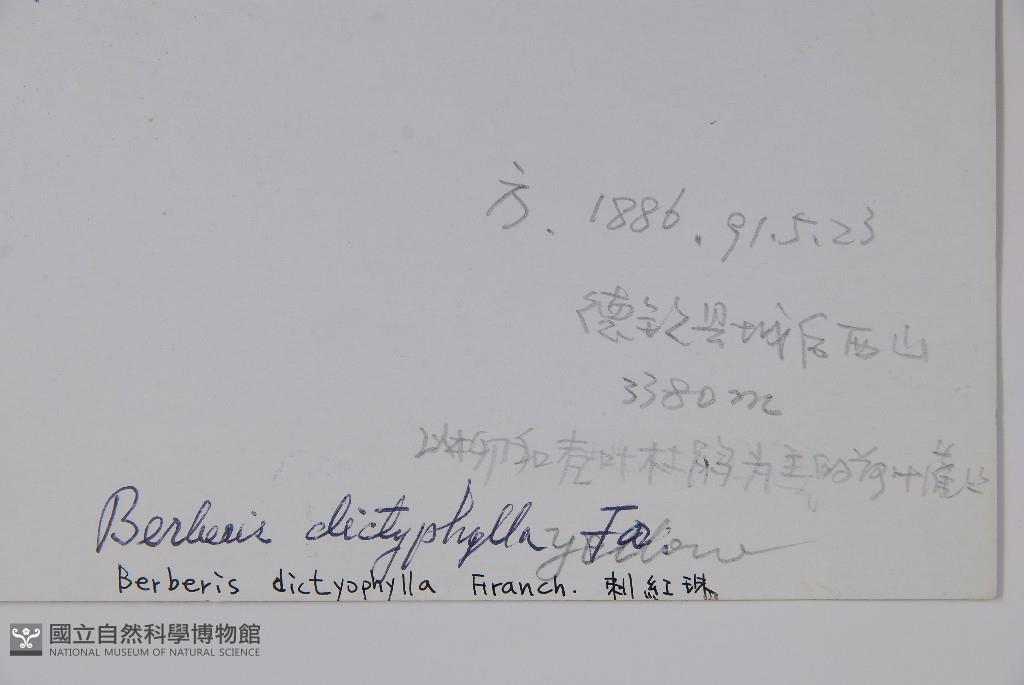 方. 1886. 91.5.23
德钦县城后西山
3380 m
以柳和 叶杜鹃为主的 叶灌丛
Berberis dictyphylla Fr
yellow
Berberis dictyophylla Franch. 刺紅珠
國立自然科學博物館
NATIONAL MUSEUM OF NATURAL SCIENCE